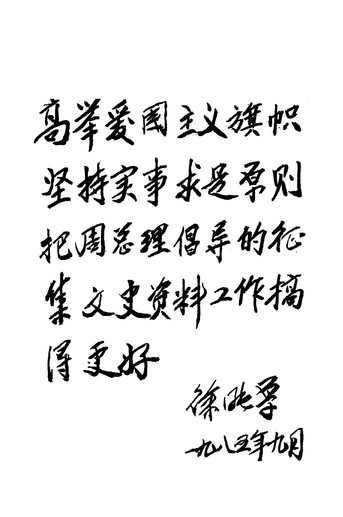 高举爱国主义旗帜
坚持实事求是原则
把周总理倡导的征
集文史资料工作搞
得更好
徐
一九八五年九月